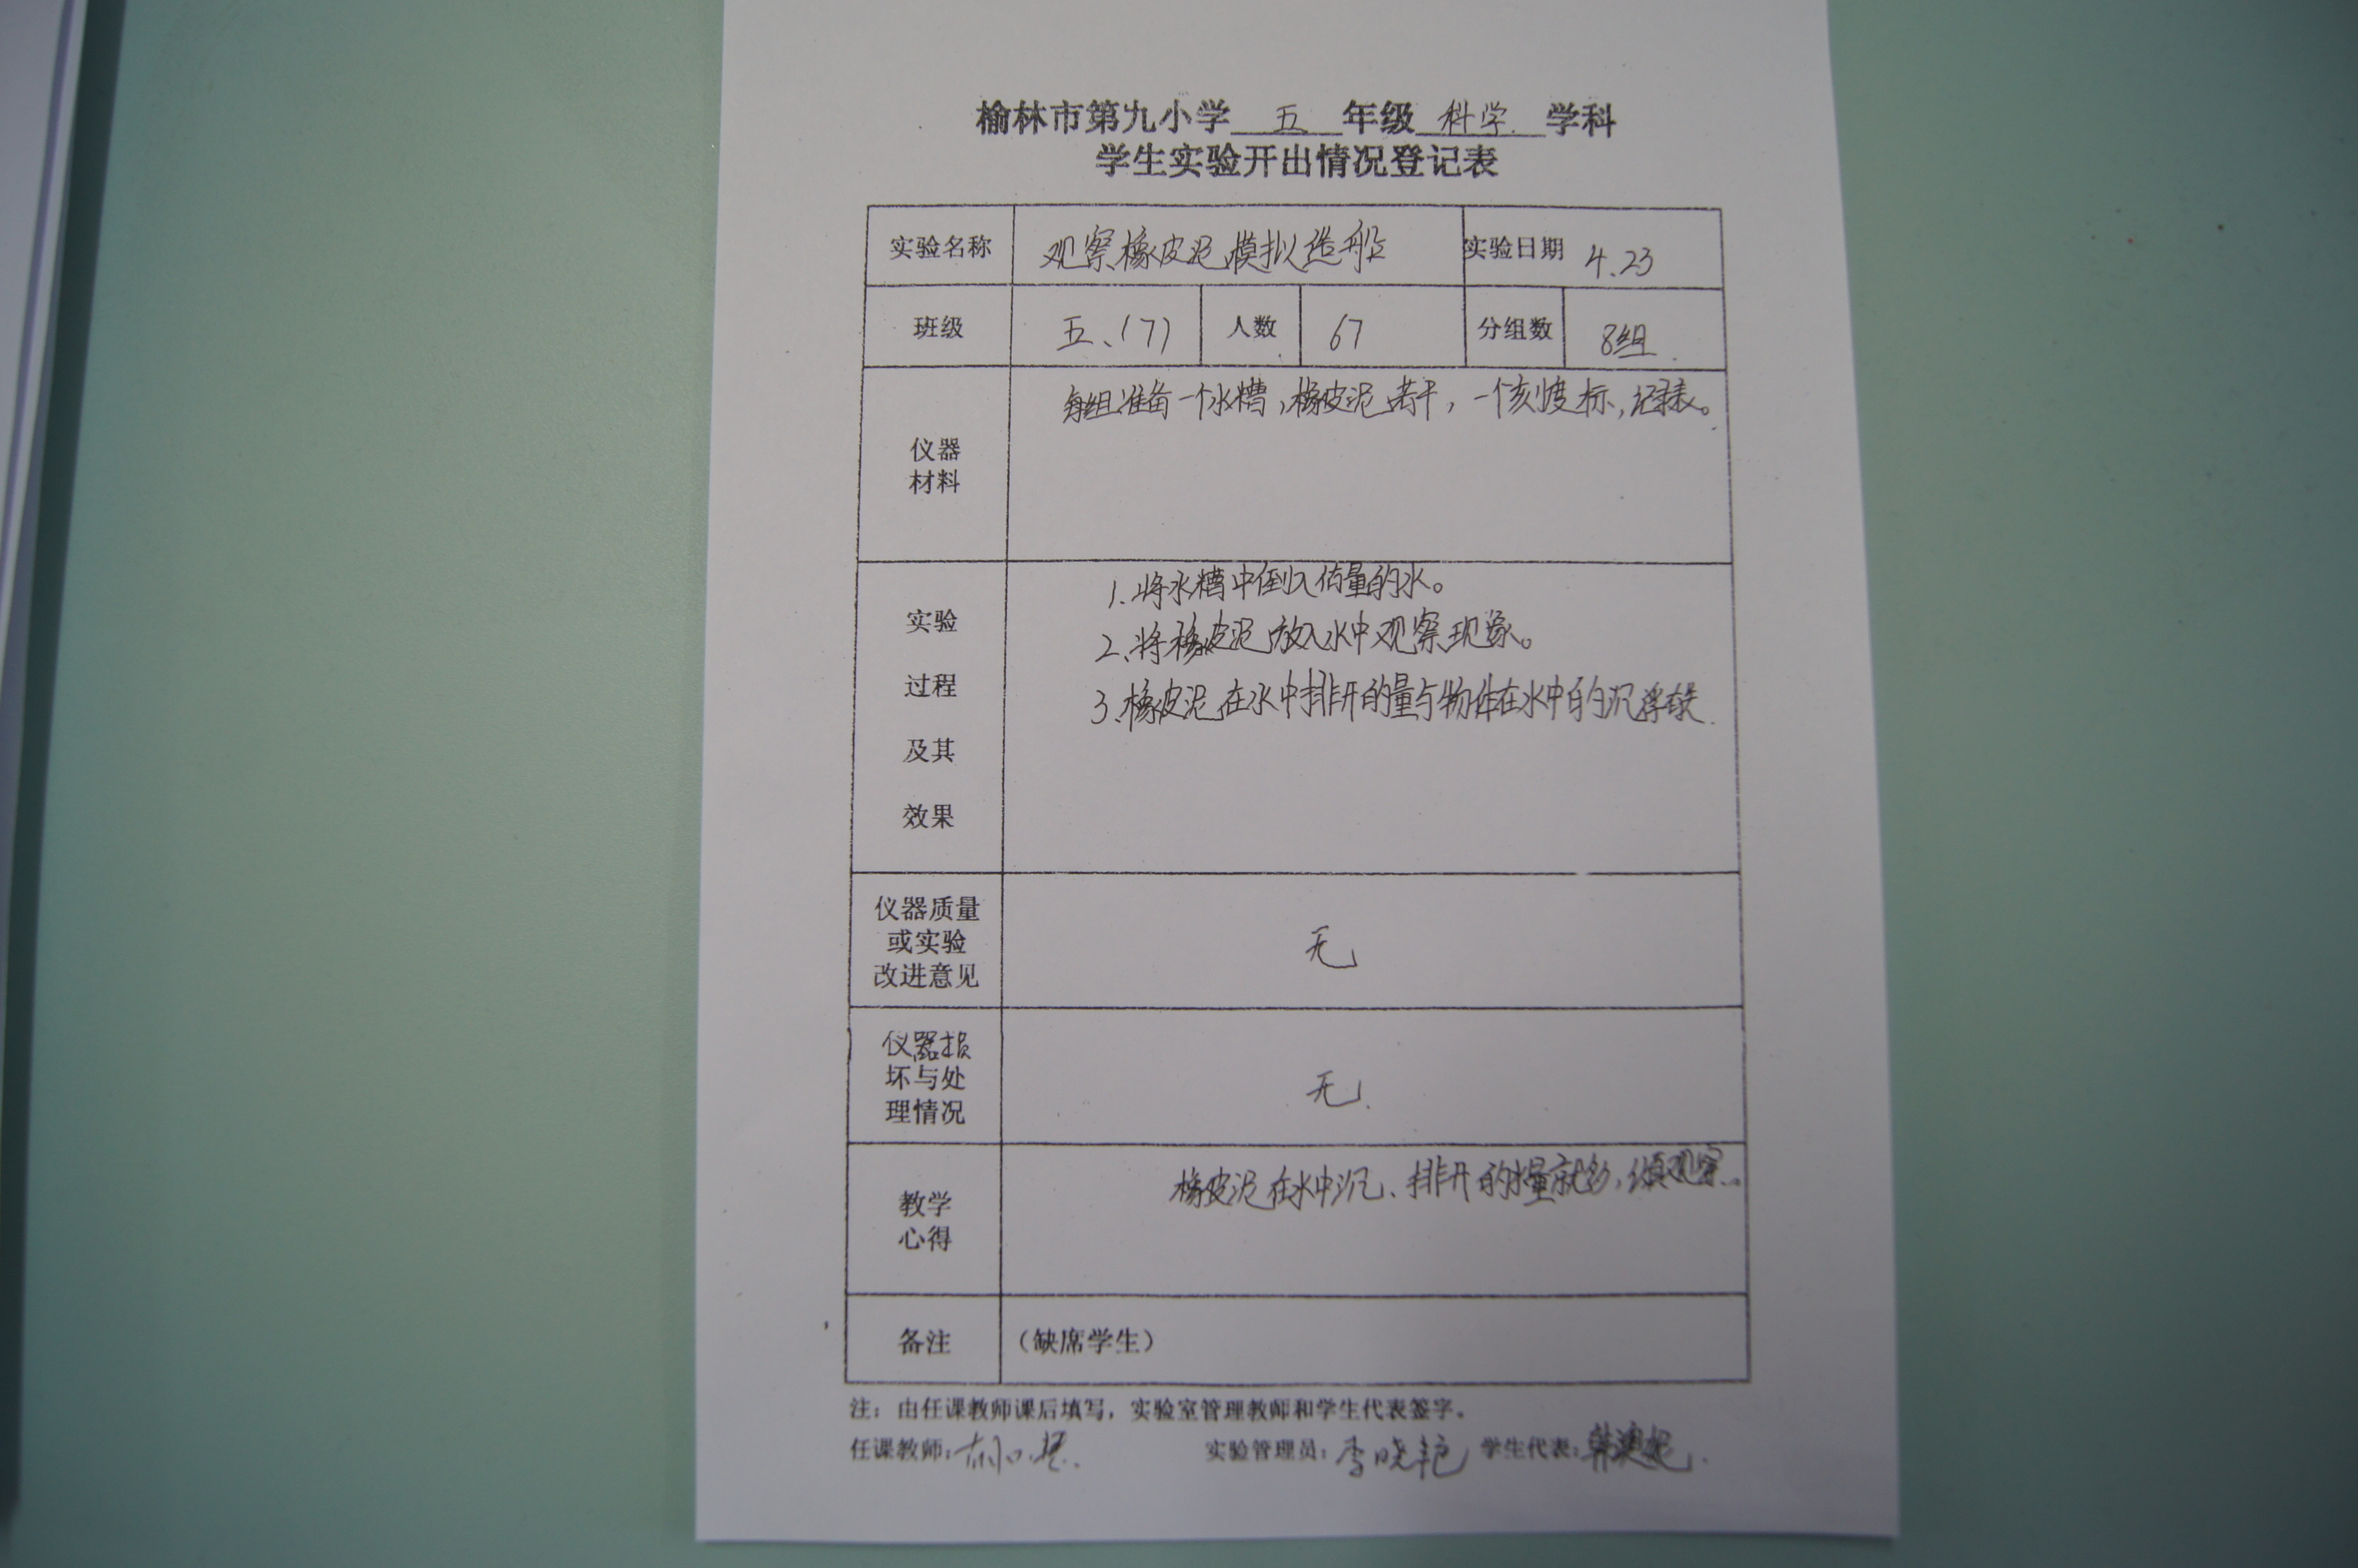 榆林市第九小学 五 年级 科学 学科
学生实验开出情况登记表
实验名称 观察橡皮泥模拟造船 实验日期 4.23
班级 五、(7) 人数 67 分组数 8组
仪器
材料
每组准备一个水槽,橡皮泥若干,一个刻度标,记录表。
实验
过程
及其
效果
1.将水槽中倒入估量的水。
2.将橡皮泥放入水中观察现象。
3.橡皮泥在水中排开的量与物体在水中的沉浮
仪器质量
或实验
改进意见
无
仪器损
坏与处
理情况
无.
教学
心得
橡皮泥在水中沉、排开的水量就多,观察。
备注 (缺席学生)
注:由任课教师课后填写,实验室管理教师和学生代表签字。
任课教师: 实验管理员:李晓艳 学生代表: